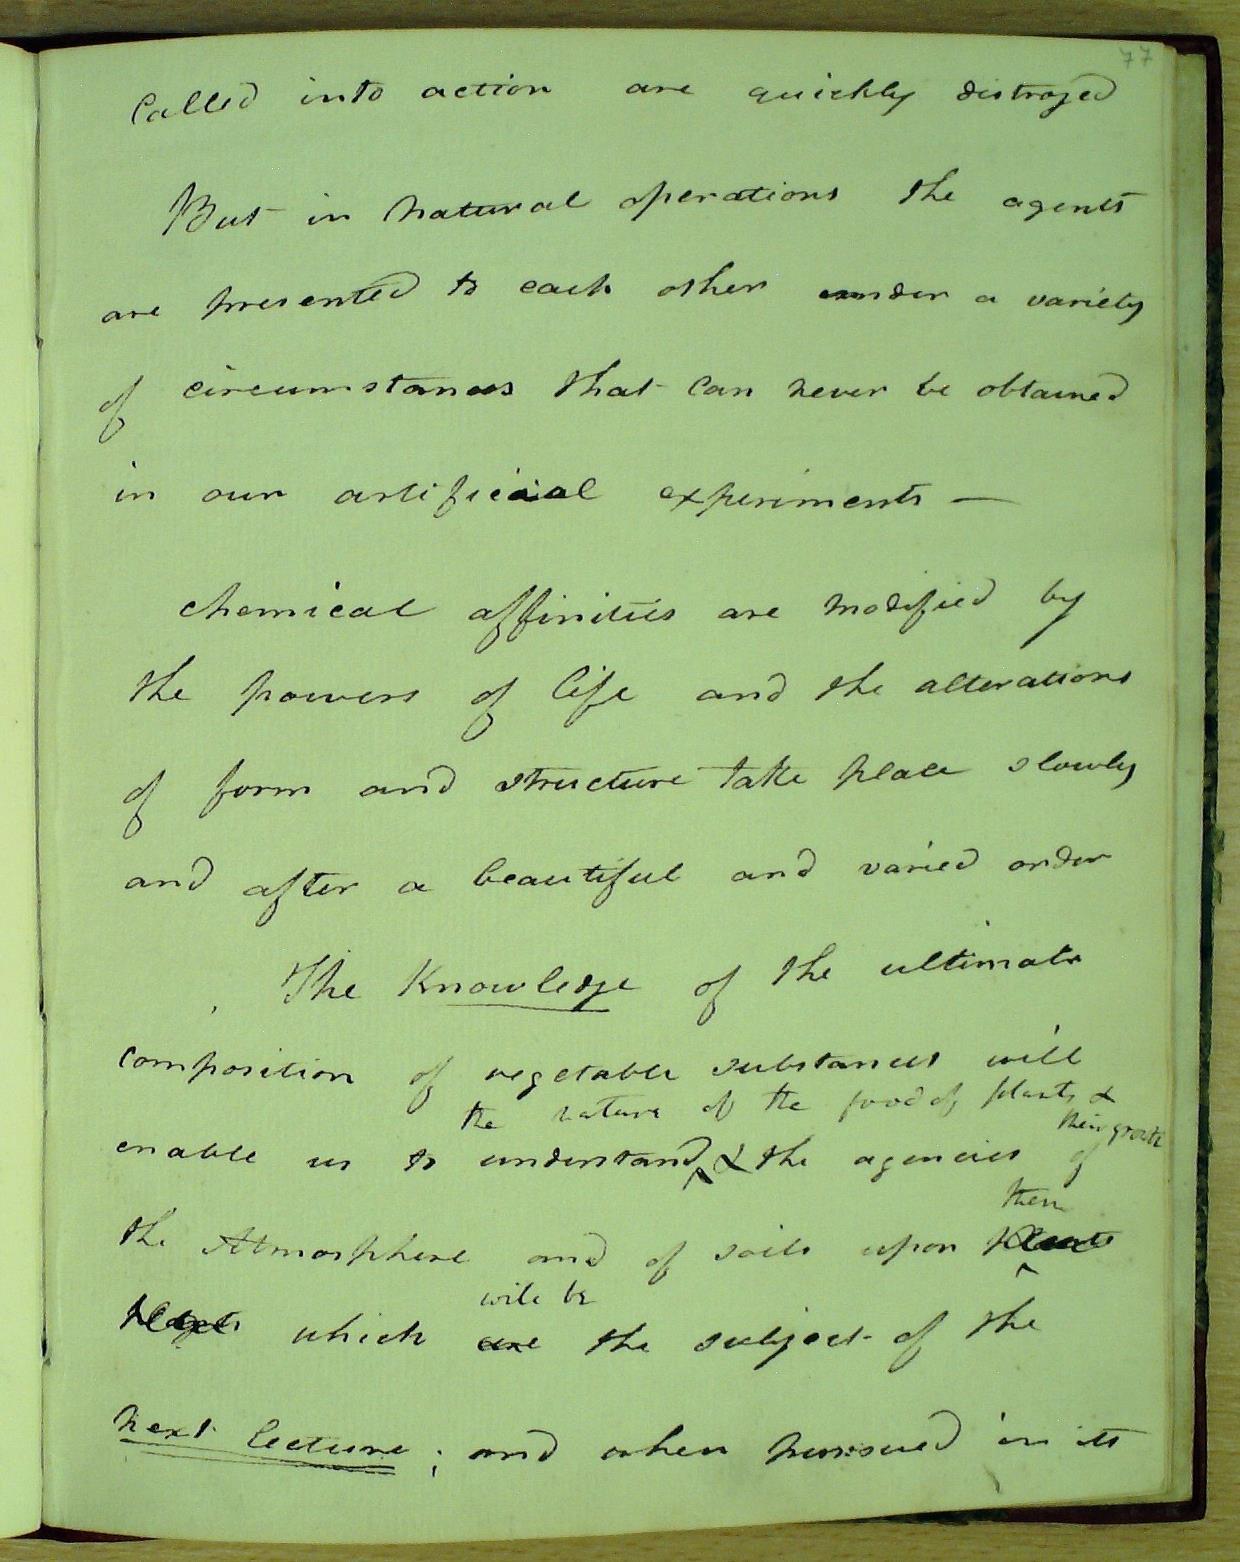 77
Called into action are quickly distroyed
But in natural operations the agents
are presented to each other under a variety
of circumstances that can never be obtained
in our artificial experiments —
chemical affinities are modified by
the powers of life and the alterations
of form and structure take place slowly
and after a beautiful and varied order
The Knowledge of the ultimate
composition of vegetable substances will
the nature of the food of plants &
their growth
enable us to understand & the agencies of
them
the Atmosphere and of soils upon plants
will be
which are the subject of the
next lecture; and when pursued in its